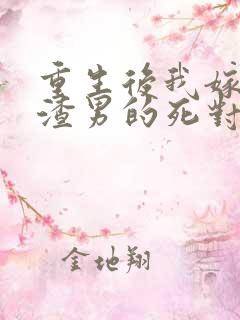 重生後我嫁
渣男的死對
金地翔